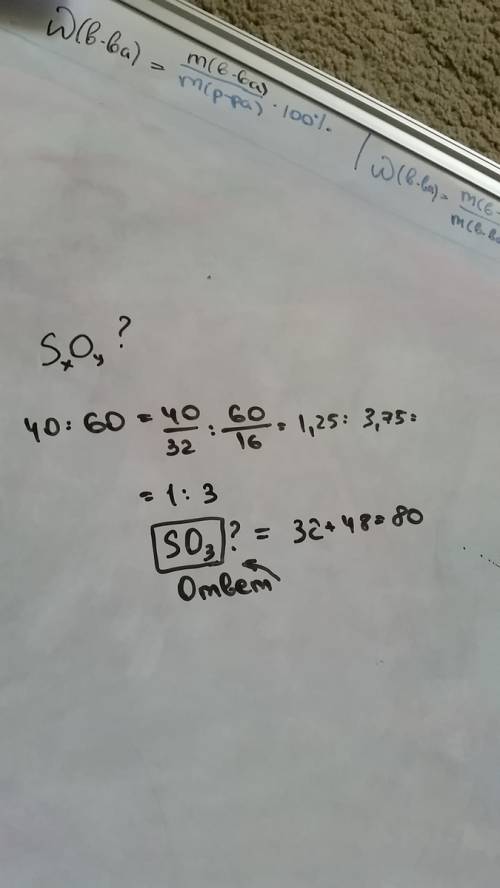 W(в-ва) = m(в-ва) / m(р-ра) · 100%.
W(в-ва) =
SxOy ?
40 : 60 = 40/32 : 60/16 = 1,25 : 3,75 =
= 1 : 3
SO3 ? = 32 + 48 = 80
Ответ